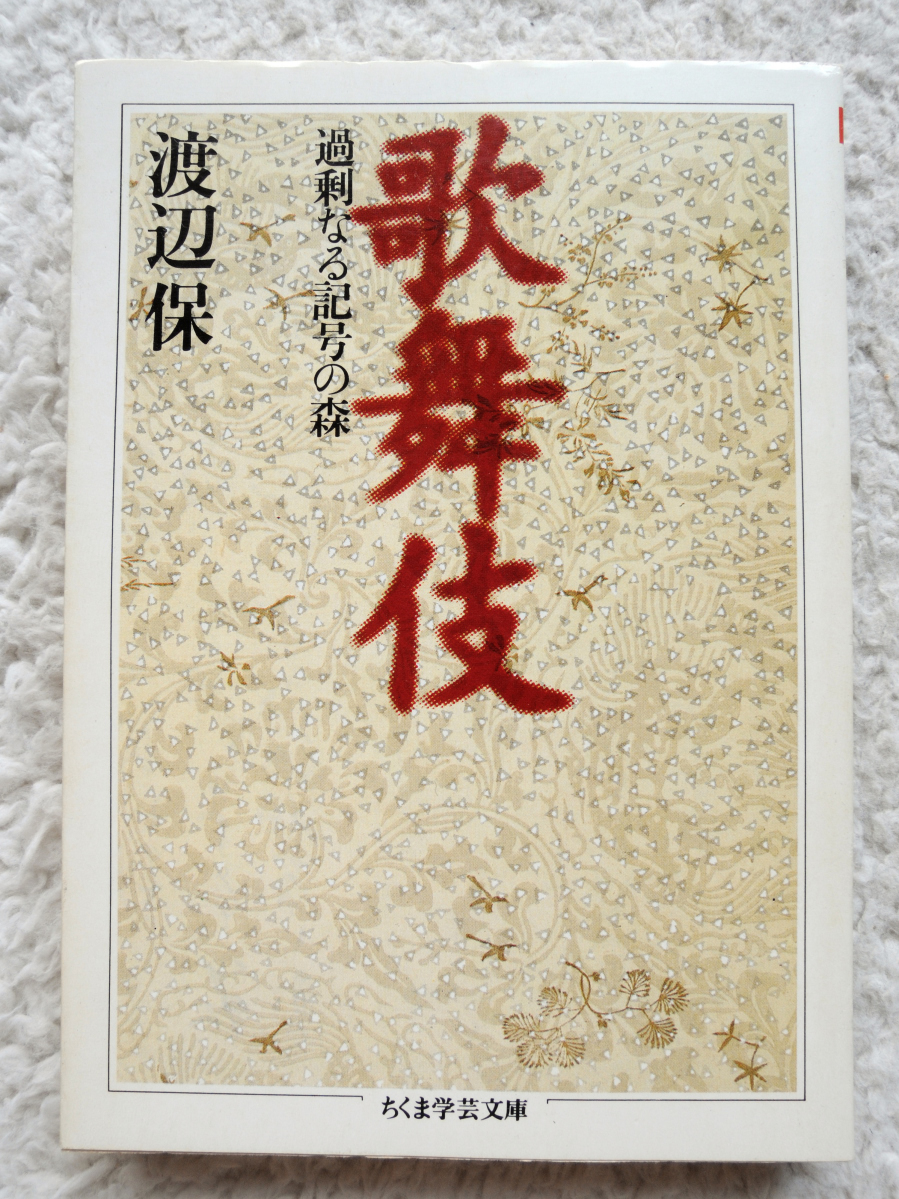 歌舞伎
過剰なる記号の森
渡辺保
ちくま学芸文庫